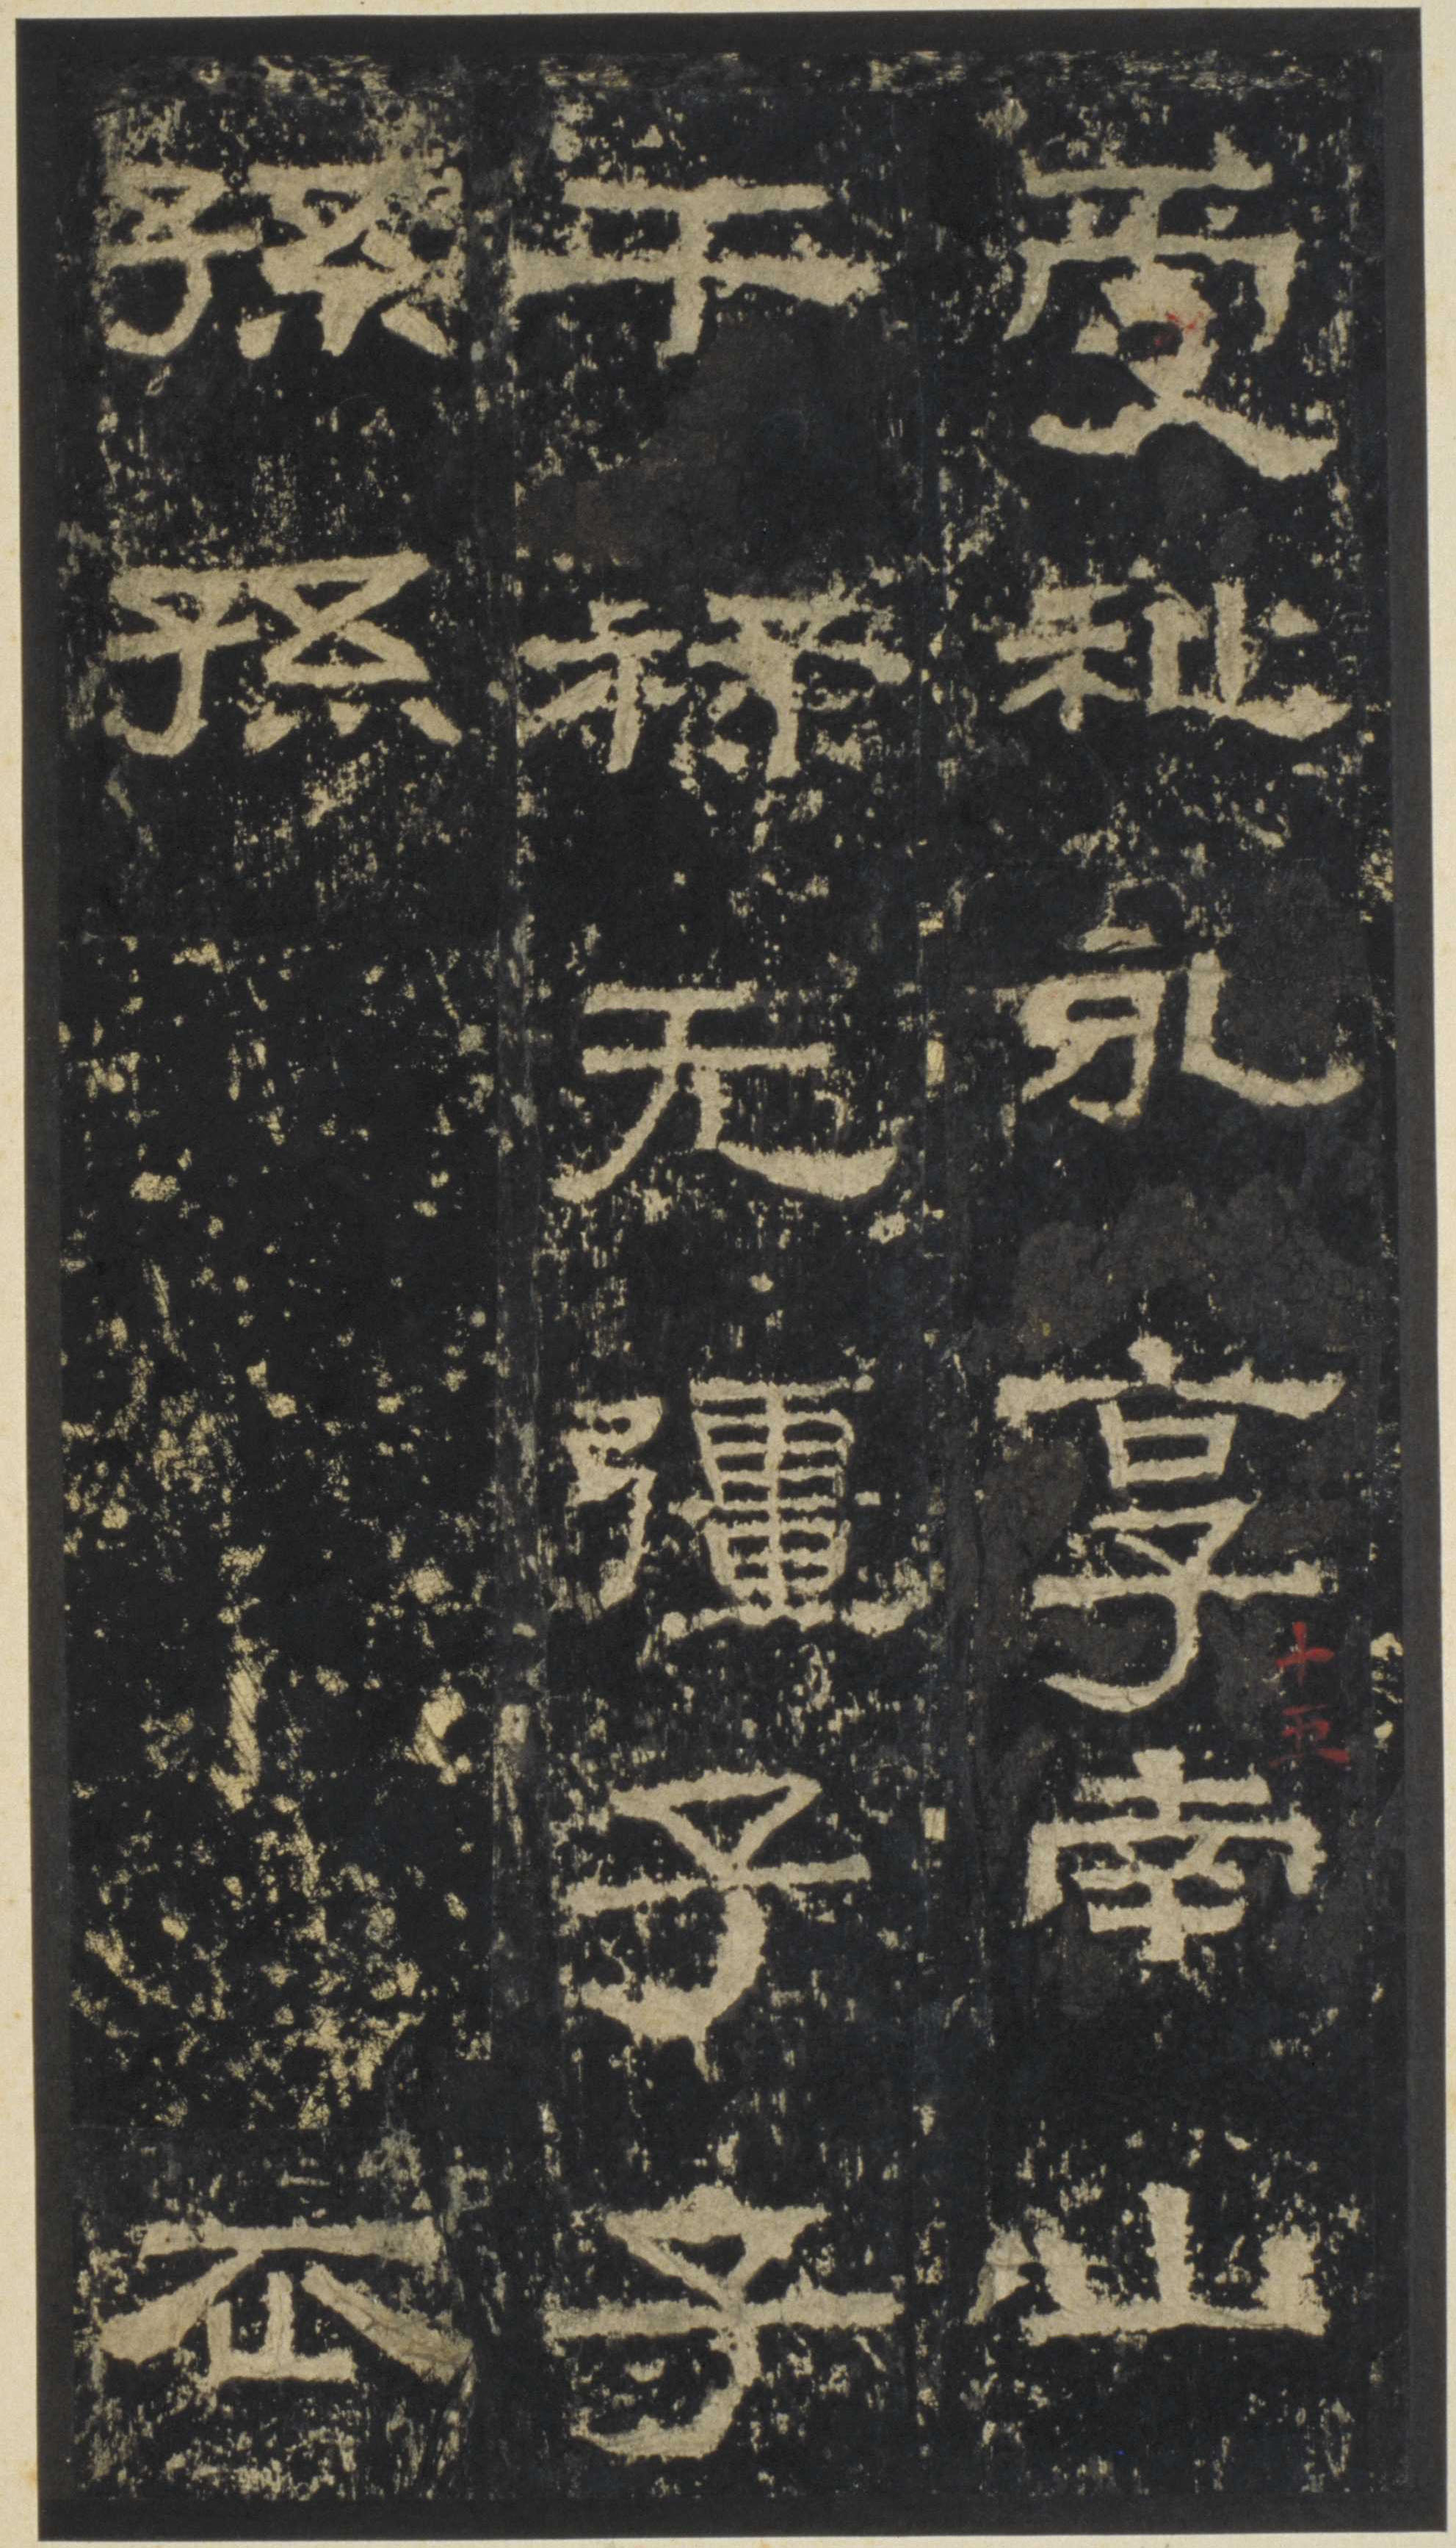 受祉永享南山
干祿无疆子子
孫孫丕
十五